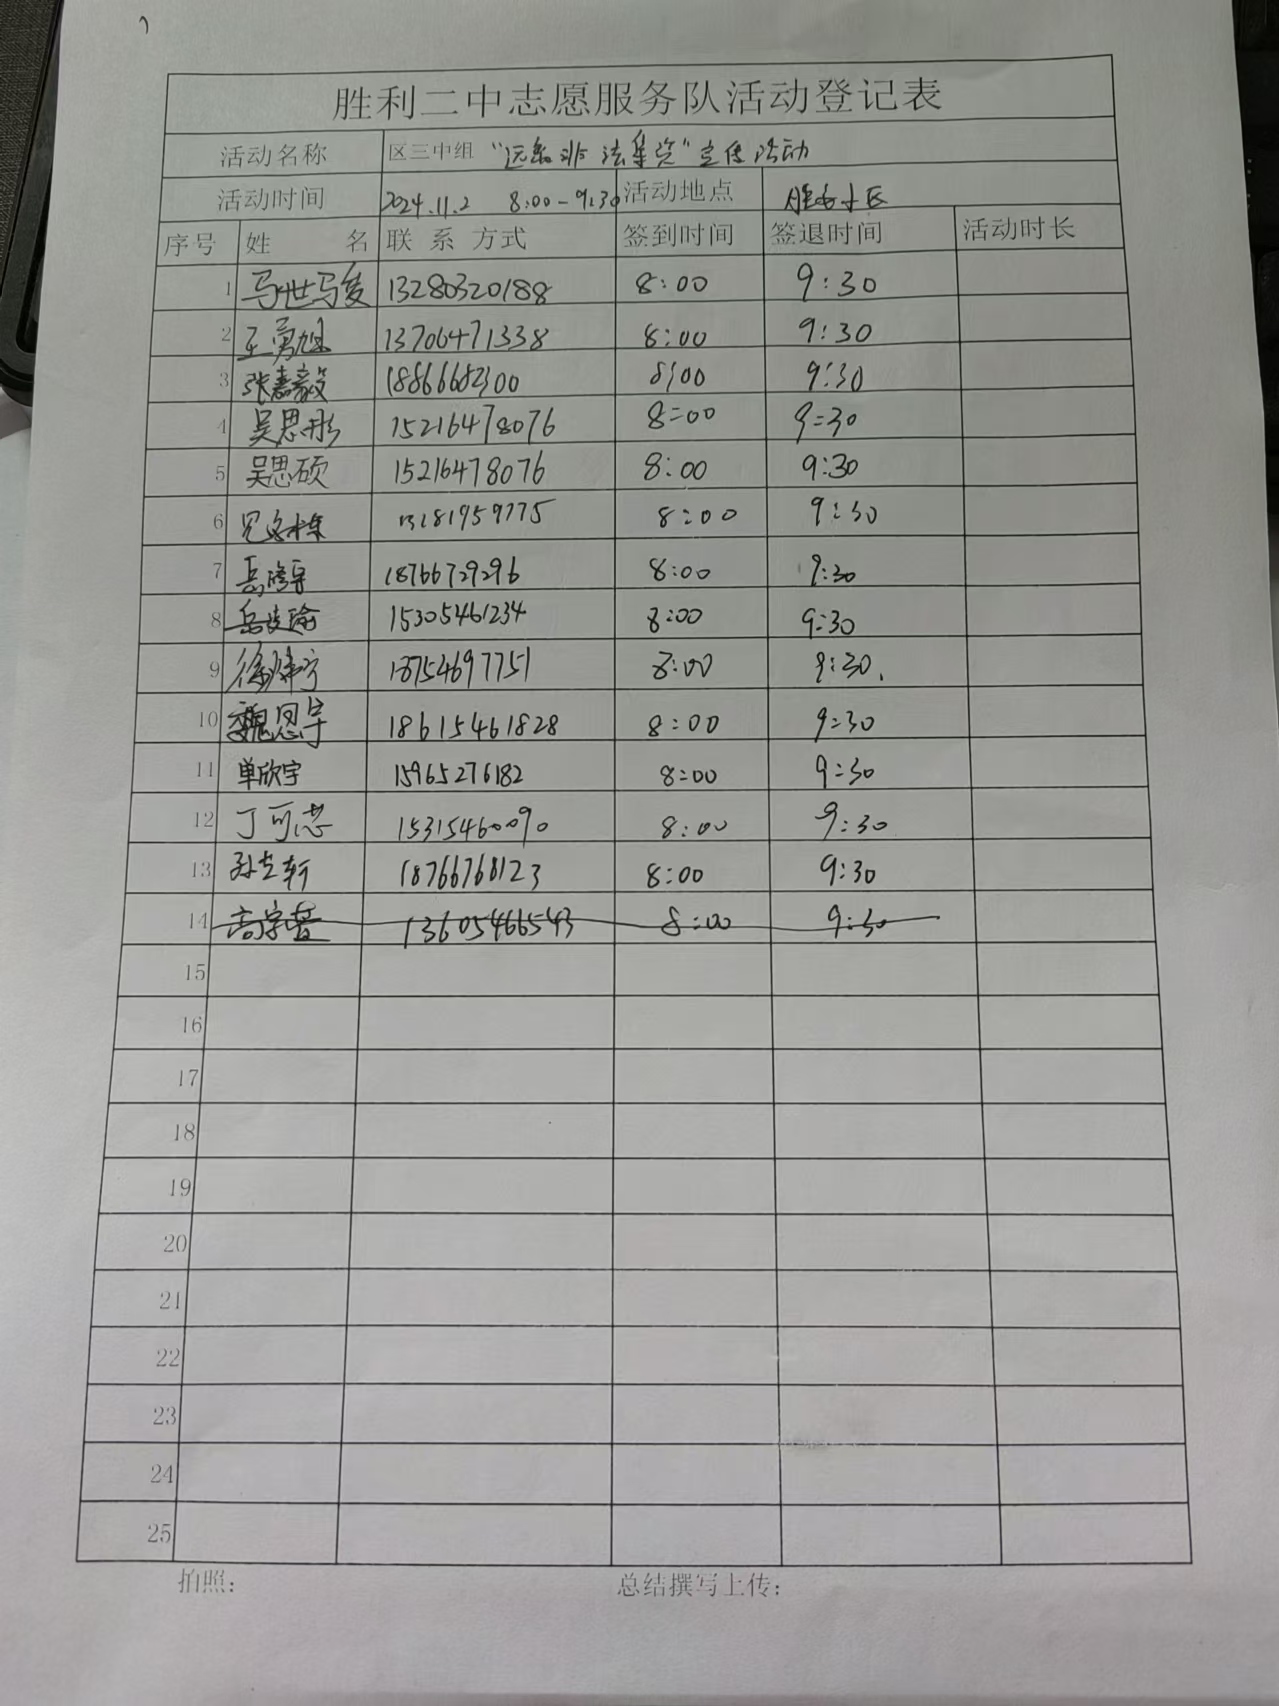 胜利二中志愿服务队活动登记表
活动名称 区三中组 “远离非法集资”宣传活动
活动时间 2024.11.2 8:00-9:30 活动地点
序号 姓 名 联 系 方式 签到时间 签退时间 活动时长
1 马世骏 13280320188 8:00 9:30
2 王勇旭 13706471338 8:00 9:30
3 张嘉毅 8:00 9:30
4 吴思彤 15216478076 8:00 9:30
5 吴思硕 15216478076 8:00 9:30
6 13181959775 8:00 9:30
7 18766729296 8:00 9:30
8 15305461234 8:00 9:30
9 13754697751 8:00 9:30.
10 魏恩宇 18615461828 8:00 9:30
11 单欣宇 15965276182 8:00 9:30
12 丁可芯 15315460090 8:00 9:30
13 18766768123 8:00 9:30
14 13605466543 8:00 9:30
15
16
17
18
19
20
21
22
23
24
25
拍照： 总结撰写上传：